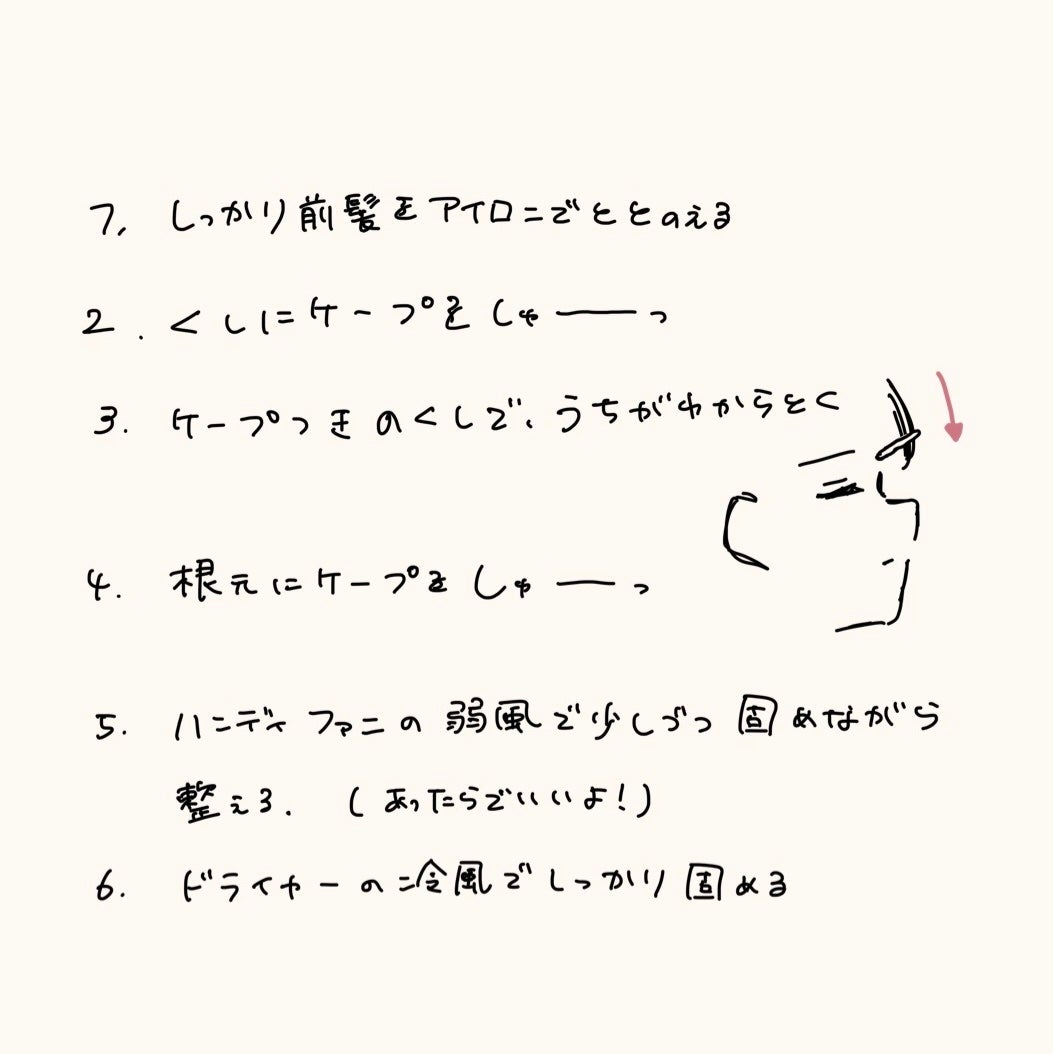 1. しっかり前髪をアイロンでととのえる
2. くしにケープをしゅーっ
3. ケープつきのくしで、うちがわからとく
4. 根元にケープをしゅーっ
5. ハンディファンの弱風で少しづつ固めながら
整える. (あったらでいいよ!)
6. ドライヤーの冷風でしっかり固める